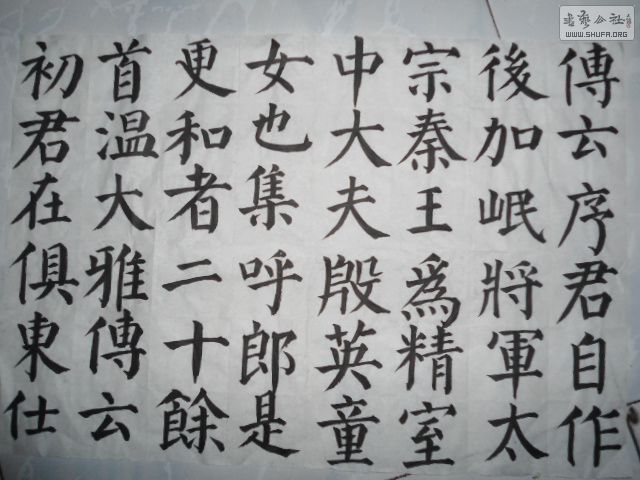 傳云序君自作
後加岷將軍太
宗秦王爲精室
中大夫殷英童
女也集呼郎是
更和者二十餘
首温大雅傳云
初君在俱東仕
WWW.SHUFA.ORG